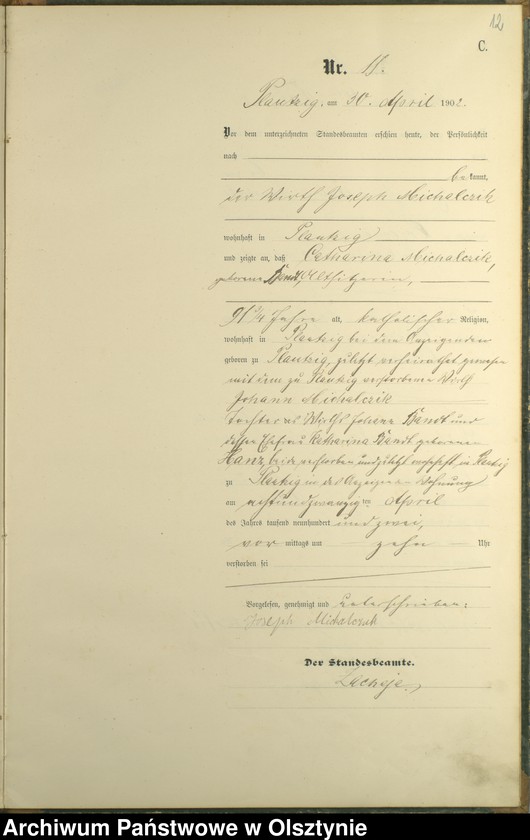 12
C.
Nr. 11.
Plautzig, am 30. April 1902.
Vor dem unterzeichneten Standesbeamten erschien heute, der Persönlichkeit
nach
be kannt,
der Wirth Joseph Michalczik
wohnhaft in Plautzig
und zeigte an, daß Catharina Michalczik,
geborene Bandt, Altsitzerin,
91 3/4 Jahre alt, katholischer Religion,
wohnhaft in Plautzig bei dem Anzeigenden
geboren zu Plautzig, zuletzt verheirathet gewesen
mit dem zu Plautzig verstorbenen Wirth
Johann Michalczik
Tochter des Wirths Johann Bandt und
dessen Ehefrau Katharina Bandt geborenen
Hanz, beide verstorben und zuletzt wohnhaft in Plautzig
zu Plautzig in des Anzeigenden Wohnung
am achtundzwanzig ten April
des Jahres tausend neunhundert und zwei,
vor mittags um zehn Uhr
verstorben sei
Vorgelesen, genehmigt und unterschrieben:
Joseph Michalczik
Der Standesbeamte.
Archiwum Państwowe w Olsztynie